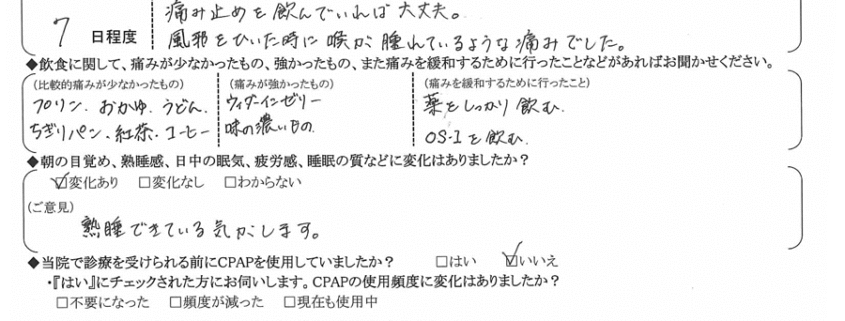 痛み止めを飲んでいれば大丈夫。
7 日程度
風邪をひいた時に喉が腫れているような痛みでした。
◆飲食に関して、痛みが少なかったもの、強かったもの、また痛みを緩和するために行ったことなどがあればお聞かせください。
(比較的痛みが少なかったもの) (痛みが強かったもの) (痛みを緩和するために行ったこと)
プリン、おかゆ、うどん、 ウィダーインゼリー 薬をしっかり飲む、
ちぎりパン、紅茶、コーヒー 味の濃いもの OS-1を飲む、
◆朝の目覚め、熟睡感、日中の眠気、疲労感、睡眠の質などに変化はありましたか？
☑変化あり □変化なし □わからない
(ご意見)
熟睡できている気がします。
◆当院で診療を受けられる前にCPAPを使用していましたか？ □はい ☑いいえ
・『はい』にチェックされた方にお伺いします。CPAPの使用頻度に変化はありましたか？
□不要になった □頻度が減った □現在も使用中